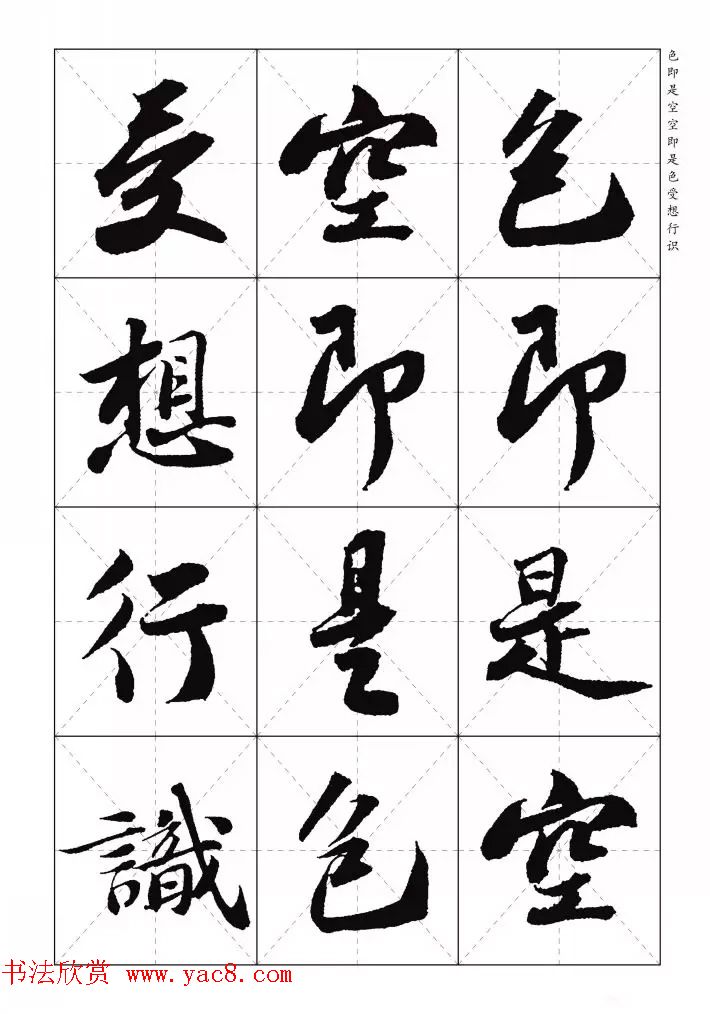 色即是空空即是色受想行识
色即是空
空即是色
受想行識
书法欣赏 www.yac8.com